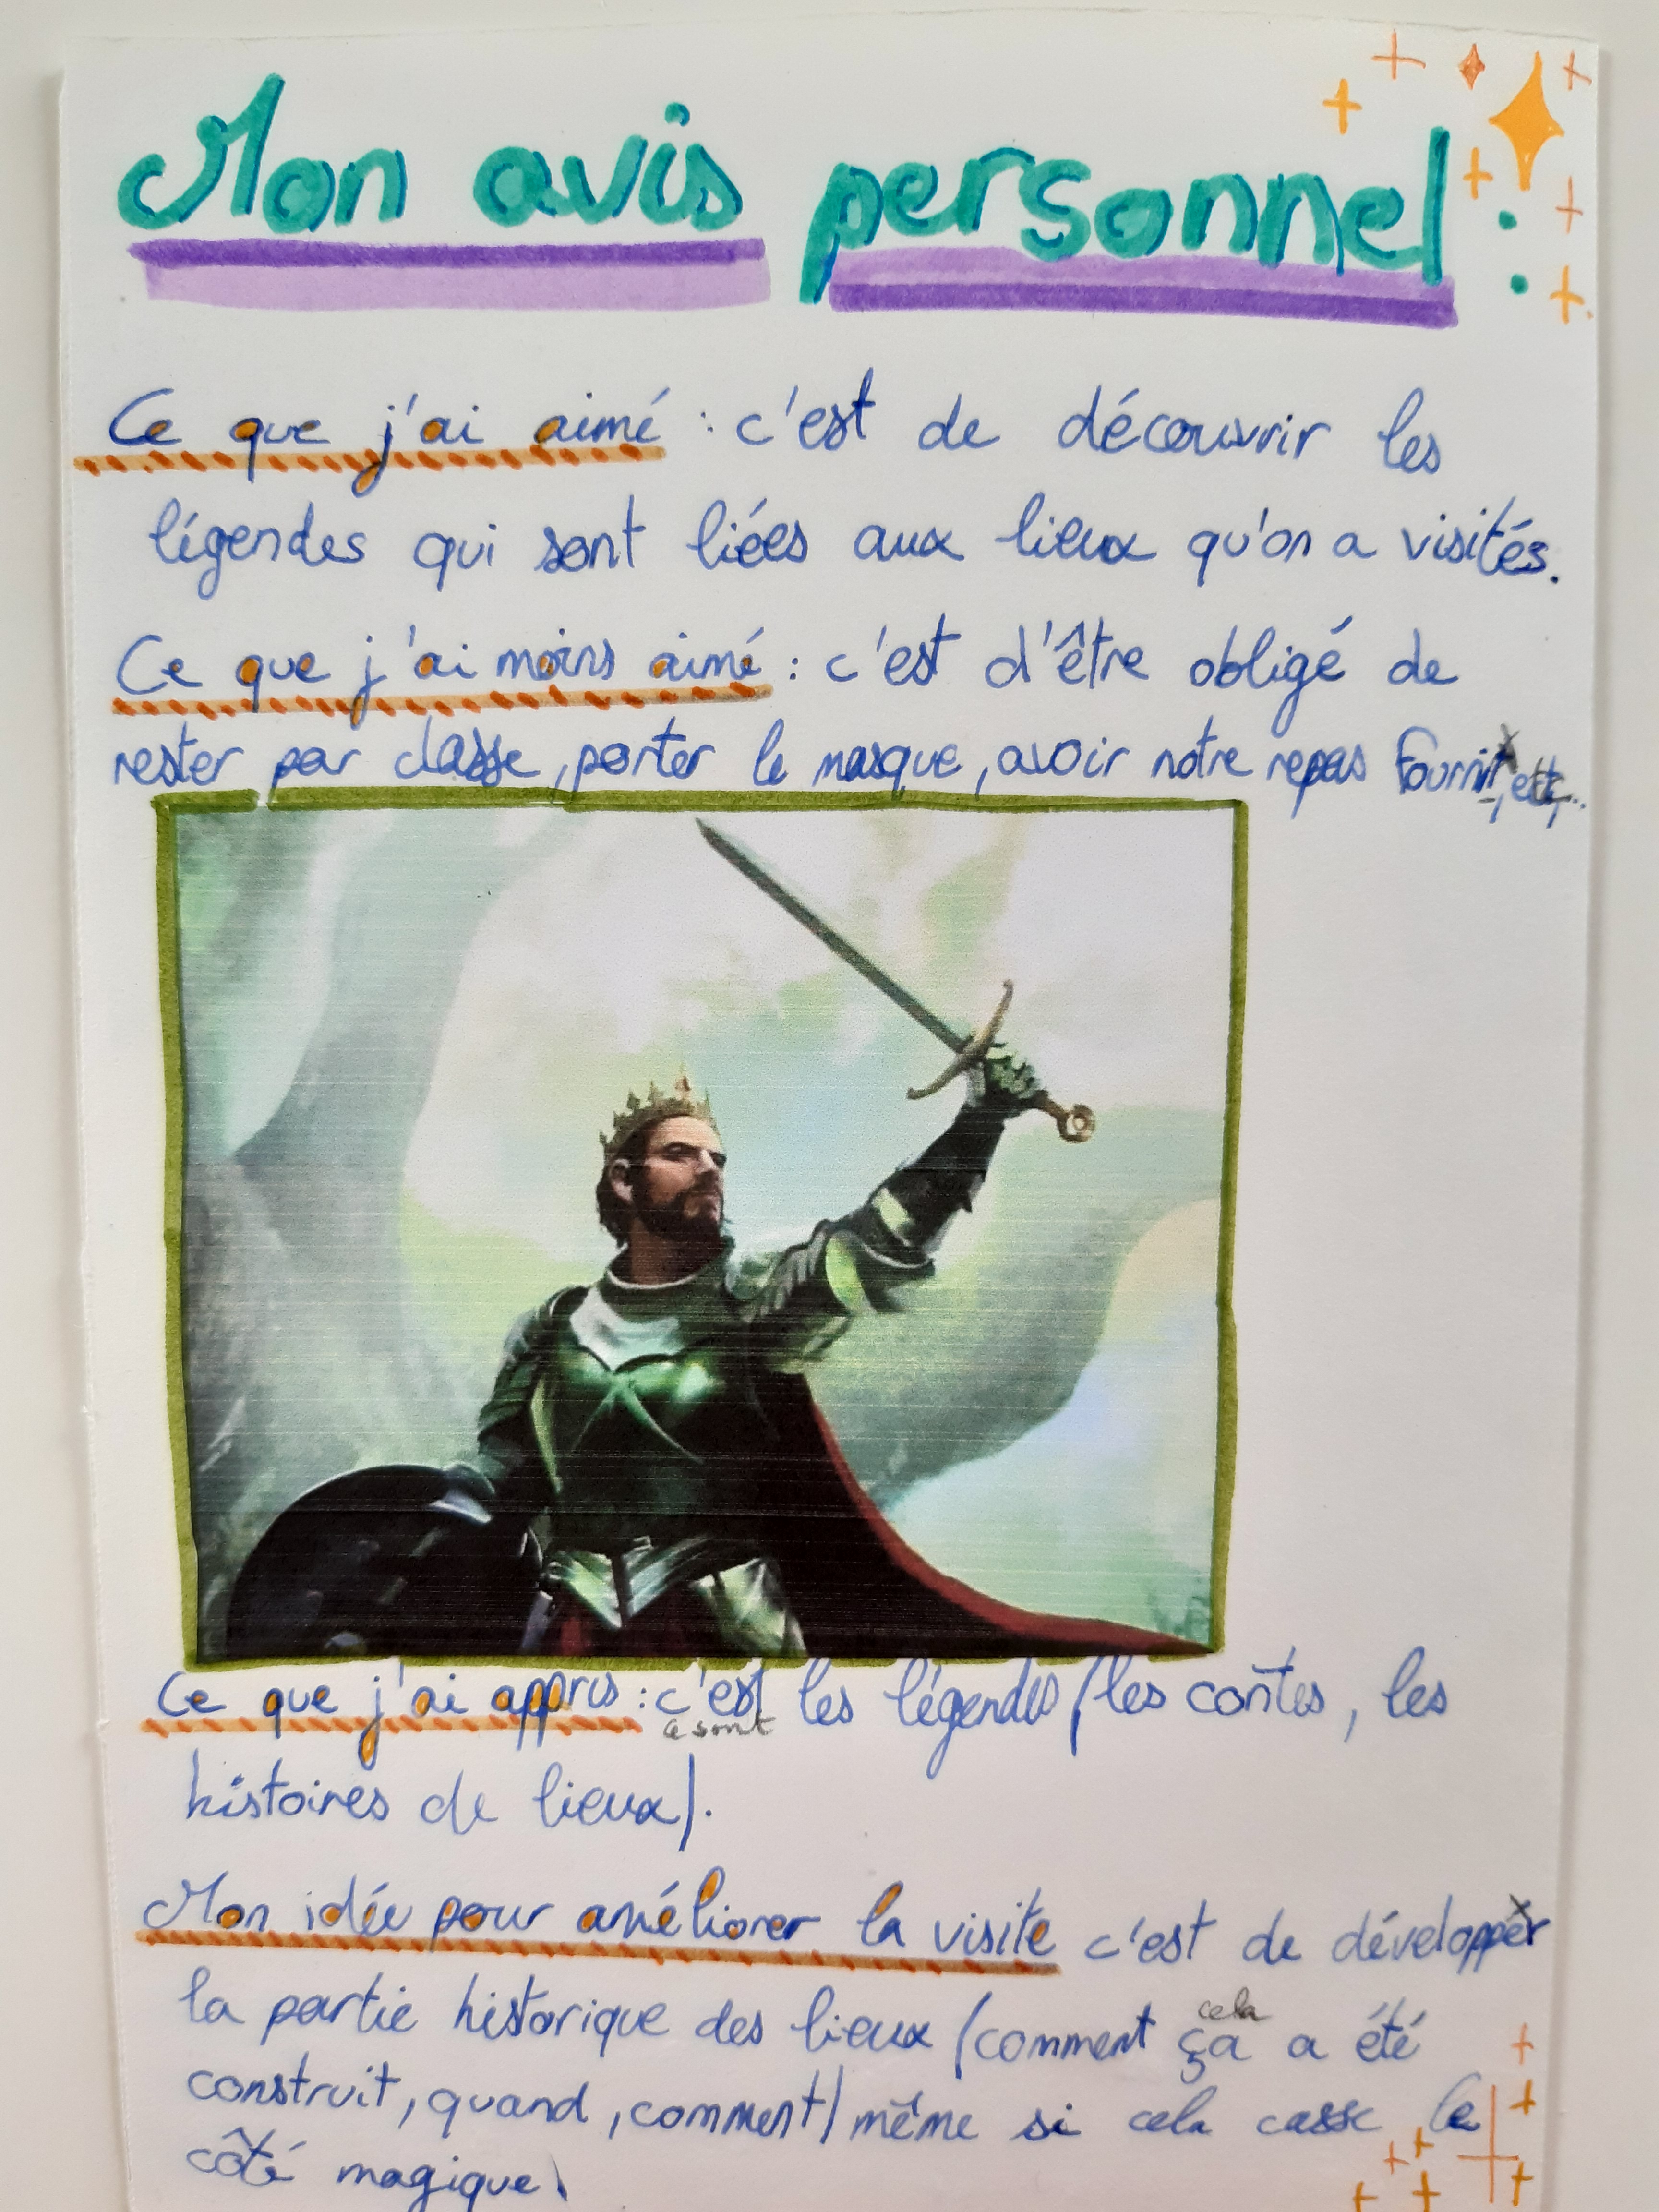 Mon avis personnel :
Ce que j'ai aimé : c'est de découvrir les
légendes qui sont liées aux lieux qu'on a visités.
Ce que j'ai moins aimé : c'est d'être obligé de
rester par classe, porter le masque, avoir notre repas fournit, ect...
Ce que j'ai appris : c'est les légendes (les contes, les
ce sont
histoires de lieux).
Mon idée pour améliorer la visite c'est de développer
cela
la partie historique des lieux (comment ça a été
construit, quand, comment) même si cela casse le
côté magique.